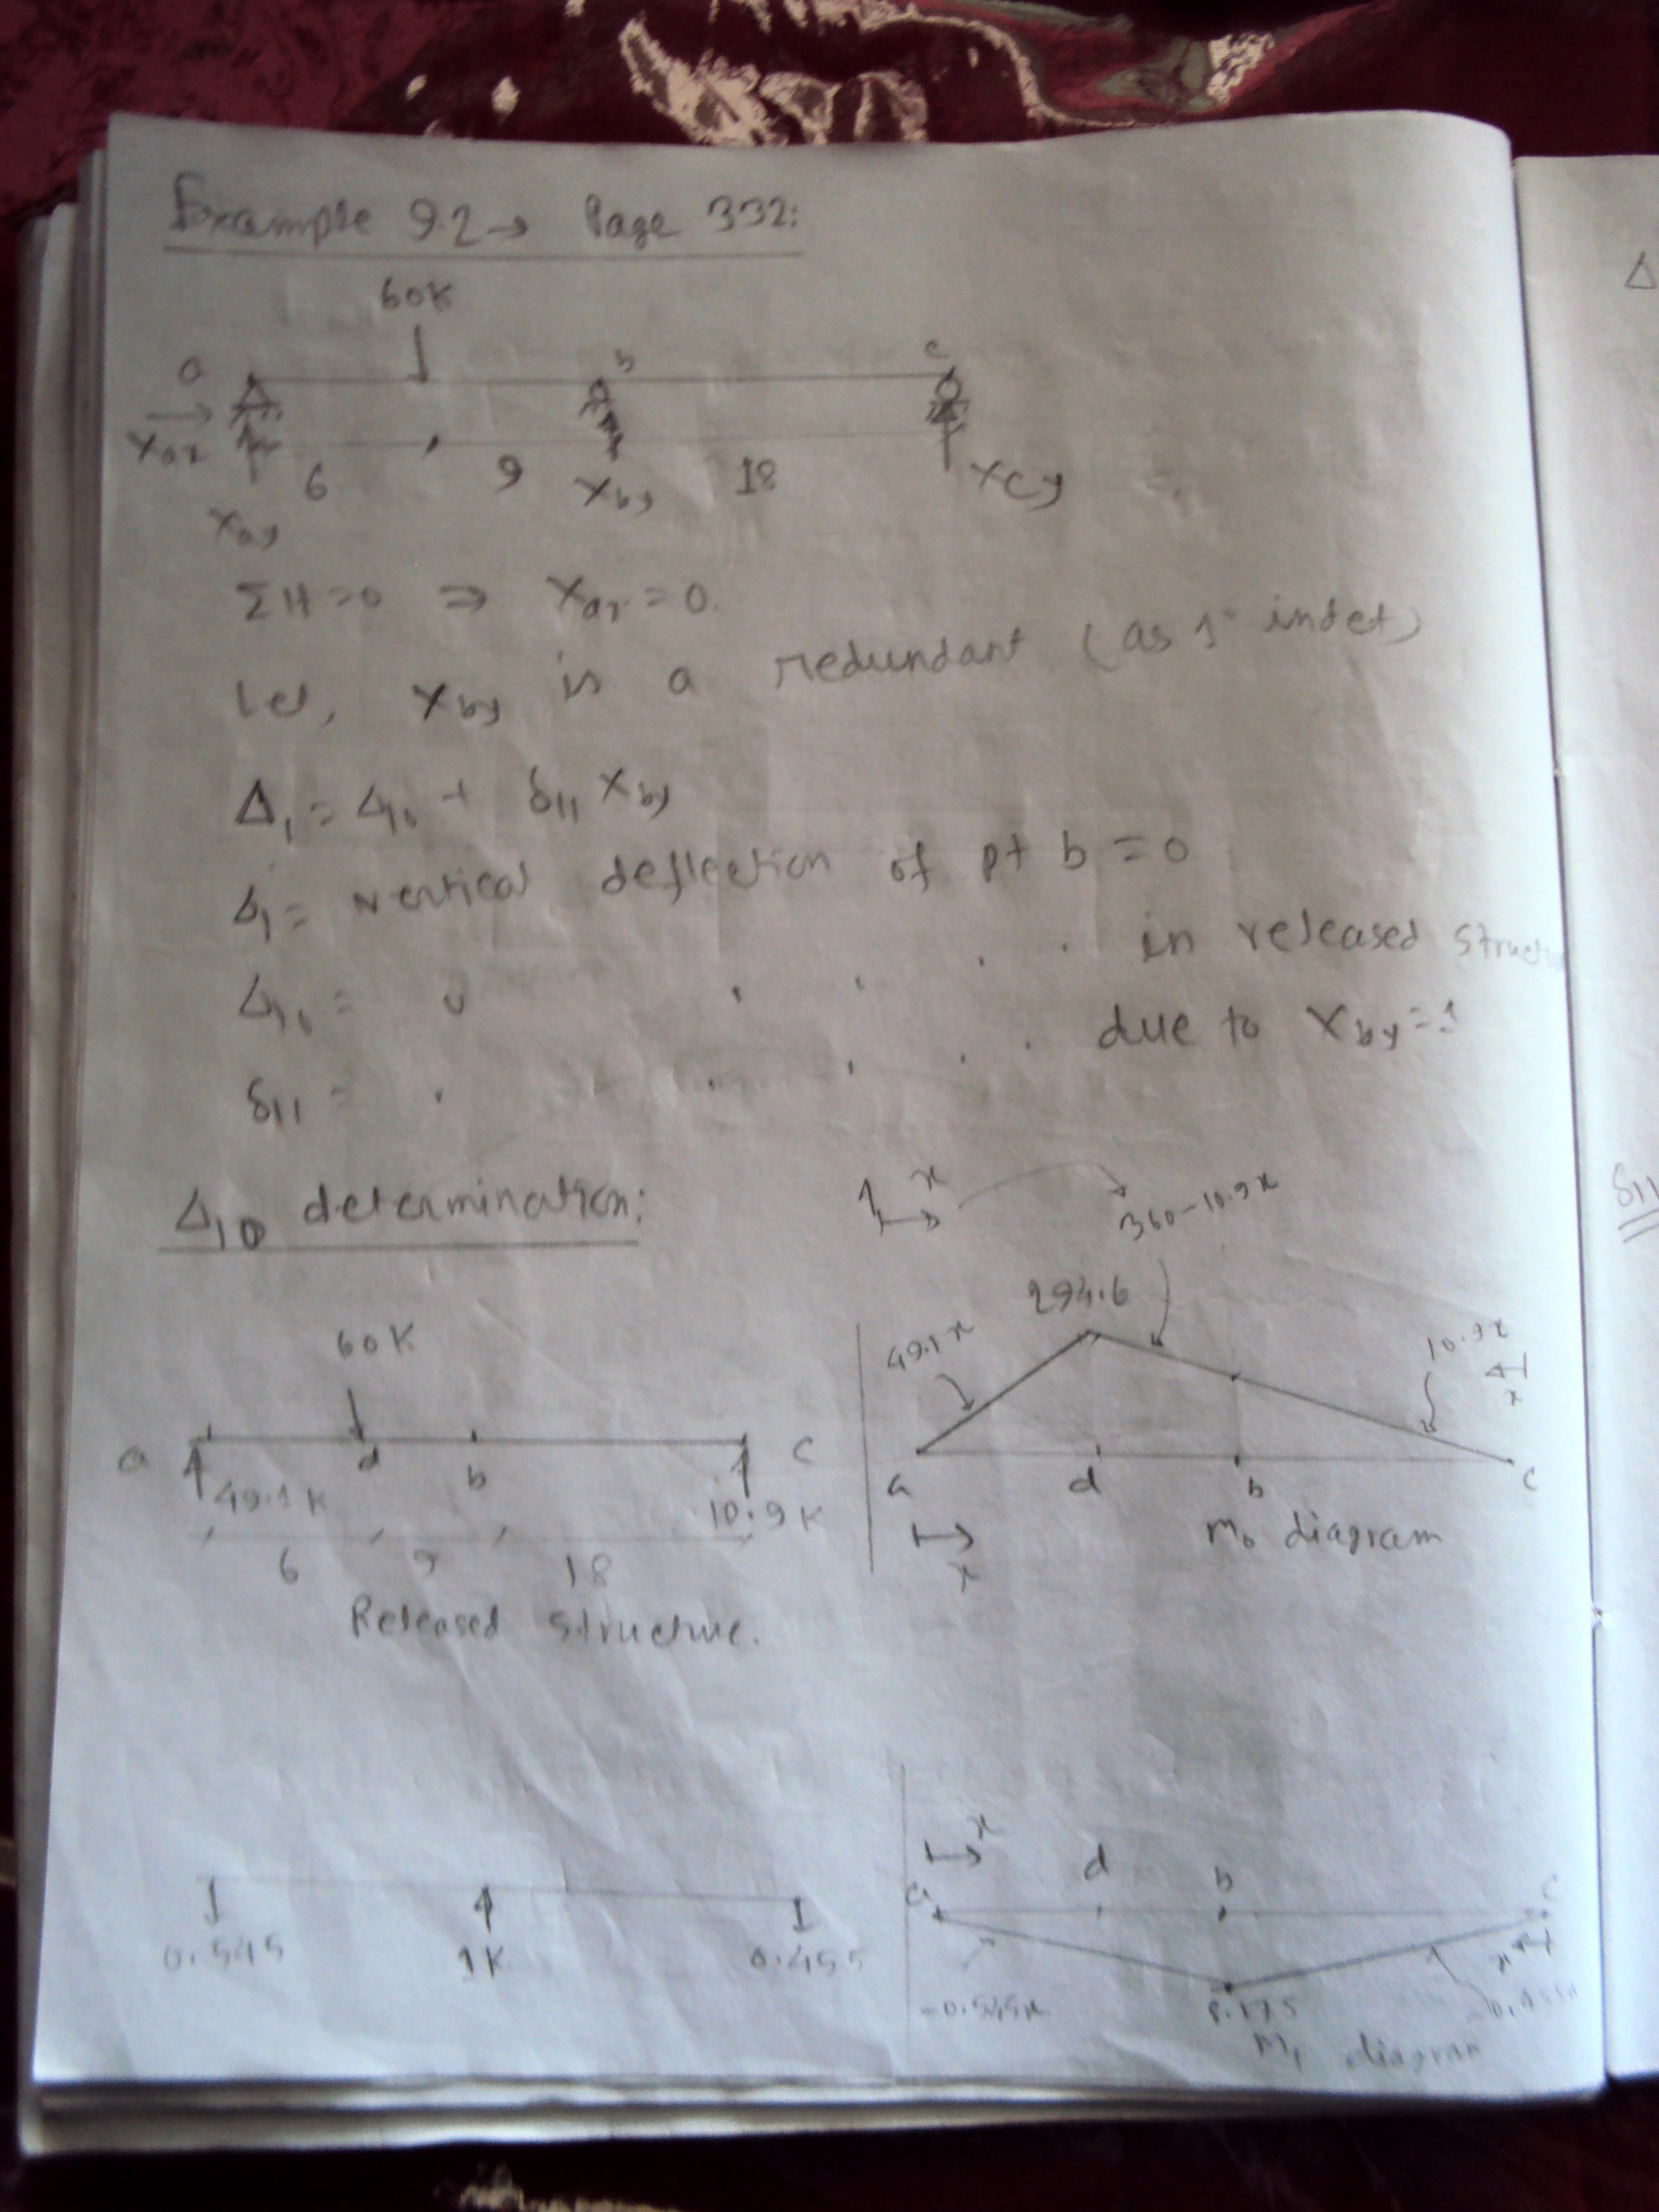 Example 9.2 → Page 332:
60K
a b c
Xax
6 9 18
Xay Xby Xcy
ΣH=0 ⇒ Xax=0.
Let, Xby is a redundant (as 1° indet)
Δ₁ = Δ₁₀ + δ₁₁ Xby
Δ₁ = vertical deflection of pt b = 0
Δ₁₀ = " . . . . in released struct
δ₁₁ = . . . . . due to Xby=1
Δ₁₀ determination:
60K
a d b c
49.1K 10.9K
6 9 18
Released structure.
x
360-10.9x
294.6
49.1x 10.9x
x
a d b c
x
M₀ diagram
0.545 1K 0.455
x
a d b c
x
-0.545x 8.175 -0.455x
M₁ diagram
Δ
δ₁₁